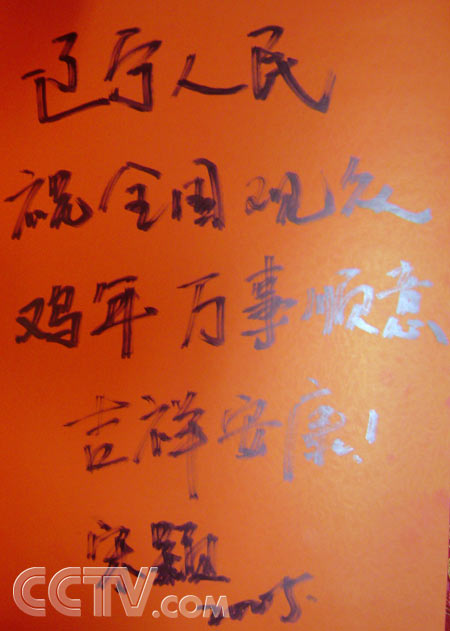 辽宁人民
祝全国观众
鸡年万事顺意
吉祥安康!
宋颖
2005.
CCTV.com